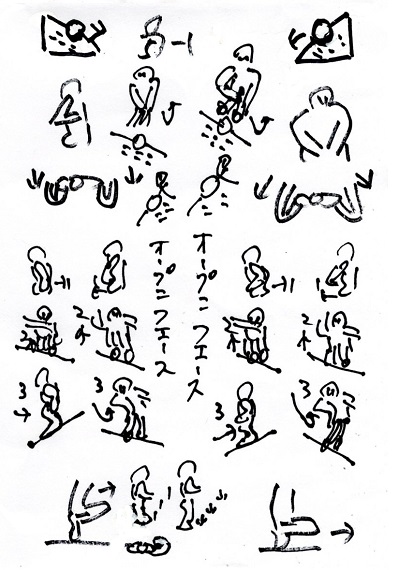 オープン フェース
オープン フェース
2
2
2
3
3
3
3